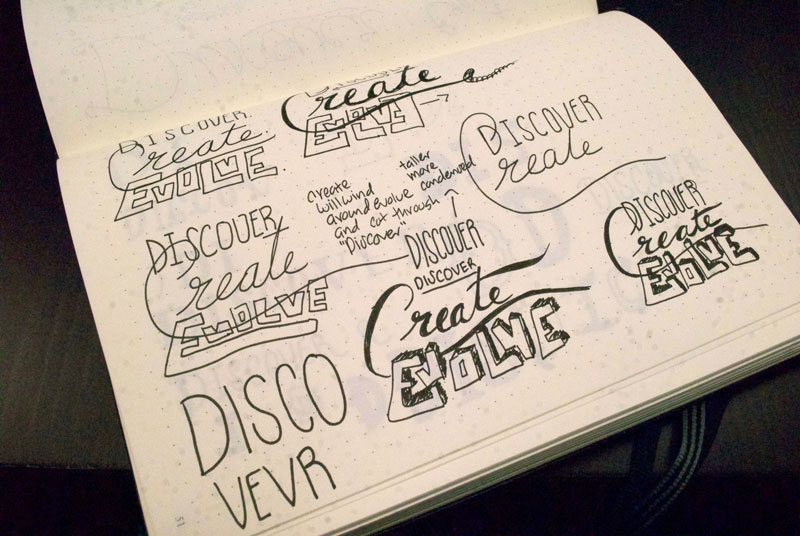 DISCOVER
Create
EVOLVE
DISCOVER
Create
EVOLVE
DISCOVER
Create
create
will wind
around evolve
and cut through
"Discover"
taller
more
condensed
DISCOVER
Create
EVOLVE
DISCOVER
DISCOVER
Create
EVOLVE
DISCOVER
Create
EVOLVE
DISCO
VEVR
51